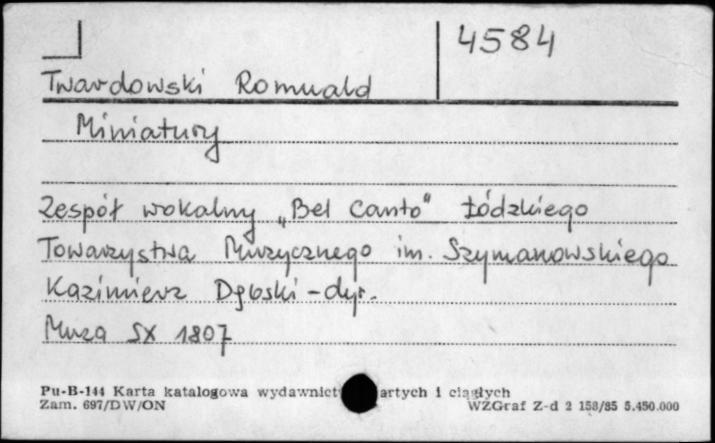 4584
Twardowski Romuald
Miniatury
Zespół wokalny „Bel Canto" Łódzkiego
Towarzystwa Muzycznego im. Szymanowskiego
Kazimierz Dębski – dyr.
Muza SX 1807
Pu-B-144 Karta katalogowa wydawnict artych i ciągłych
Zam. 697/DW/ON WZGraf Z-d 2 158/85 5.450.000